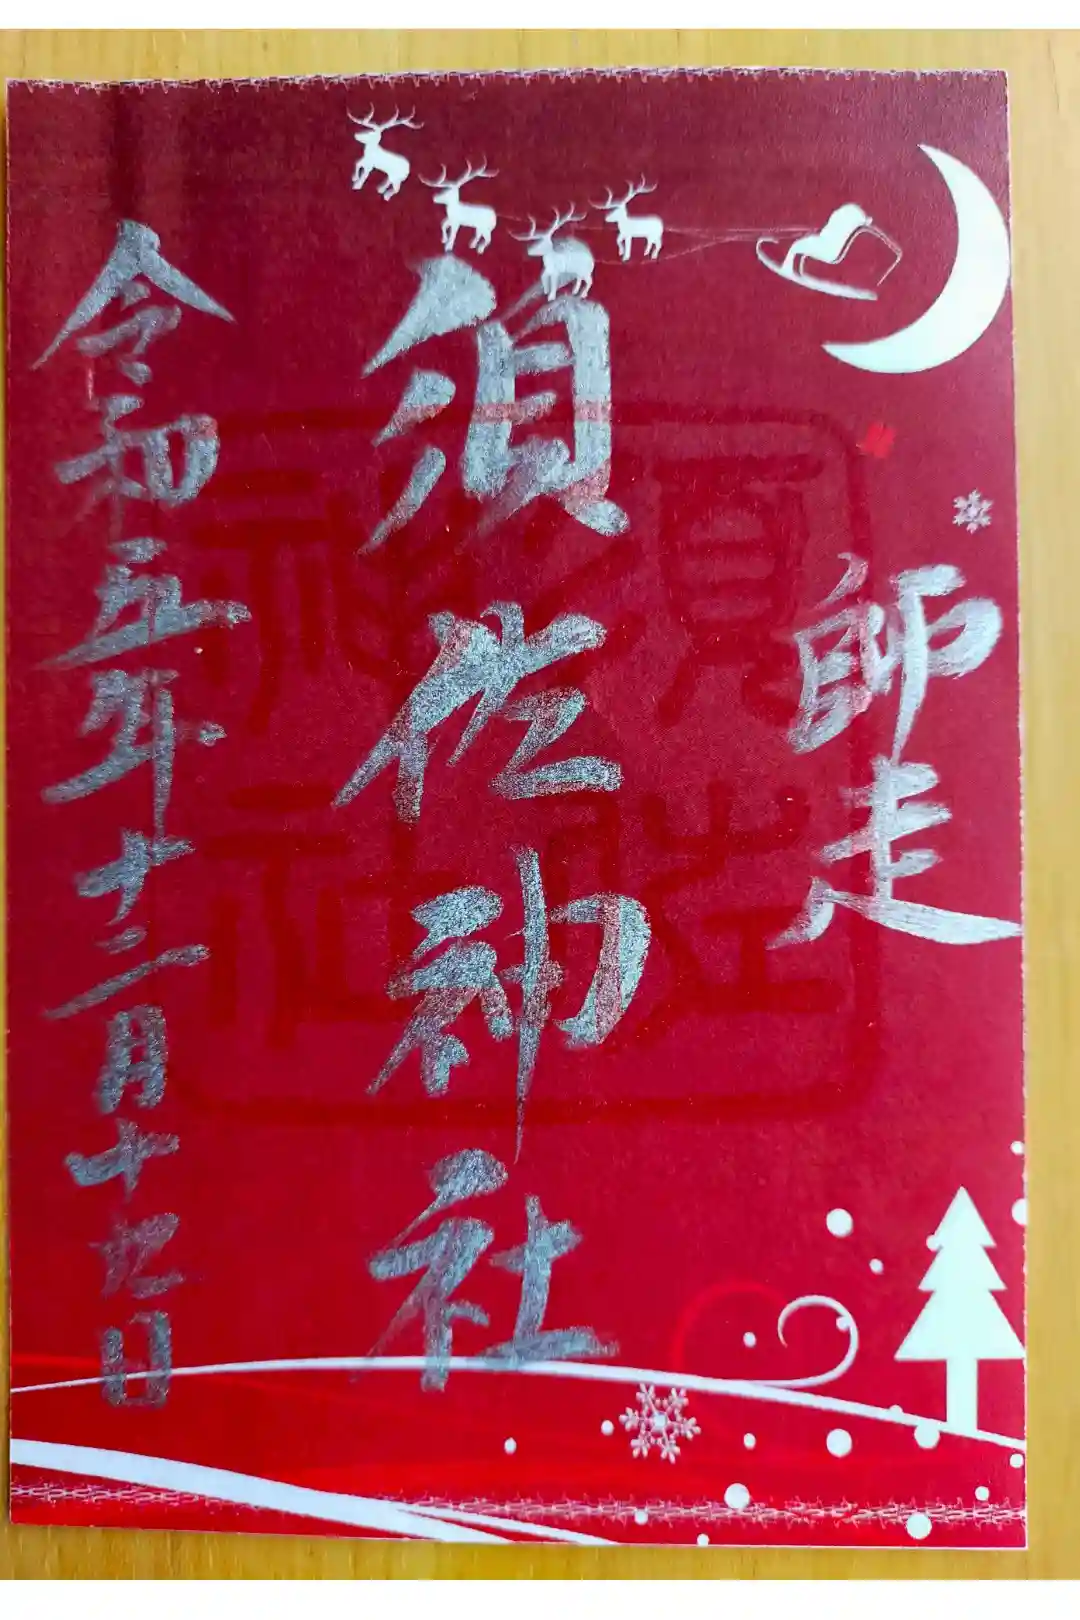 師走
須佐神社
令和五年十二月十九日
須佐
神社